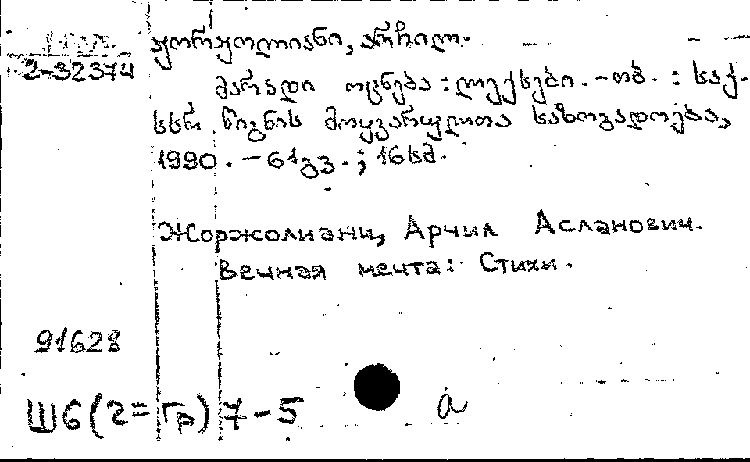 ჟორჟოლიანი, არჩილ.
2-32374
მარადი ოცნება : ლექსები. - თბ. : საქ.
სსრ წიგნის მოყვარულთა საზოგადოება,
1990. - 61 გვ. ; 16 სმ.
Жоржолиани, Арчил Асланович.
Вечная мечта: Стихи.
91628
Ш6(2=Гр)7-5
a